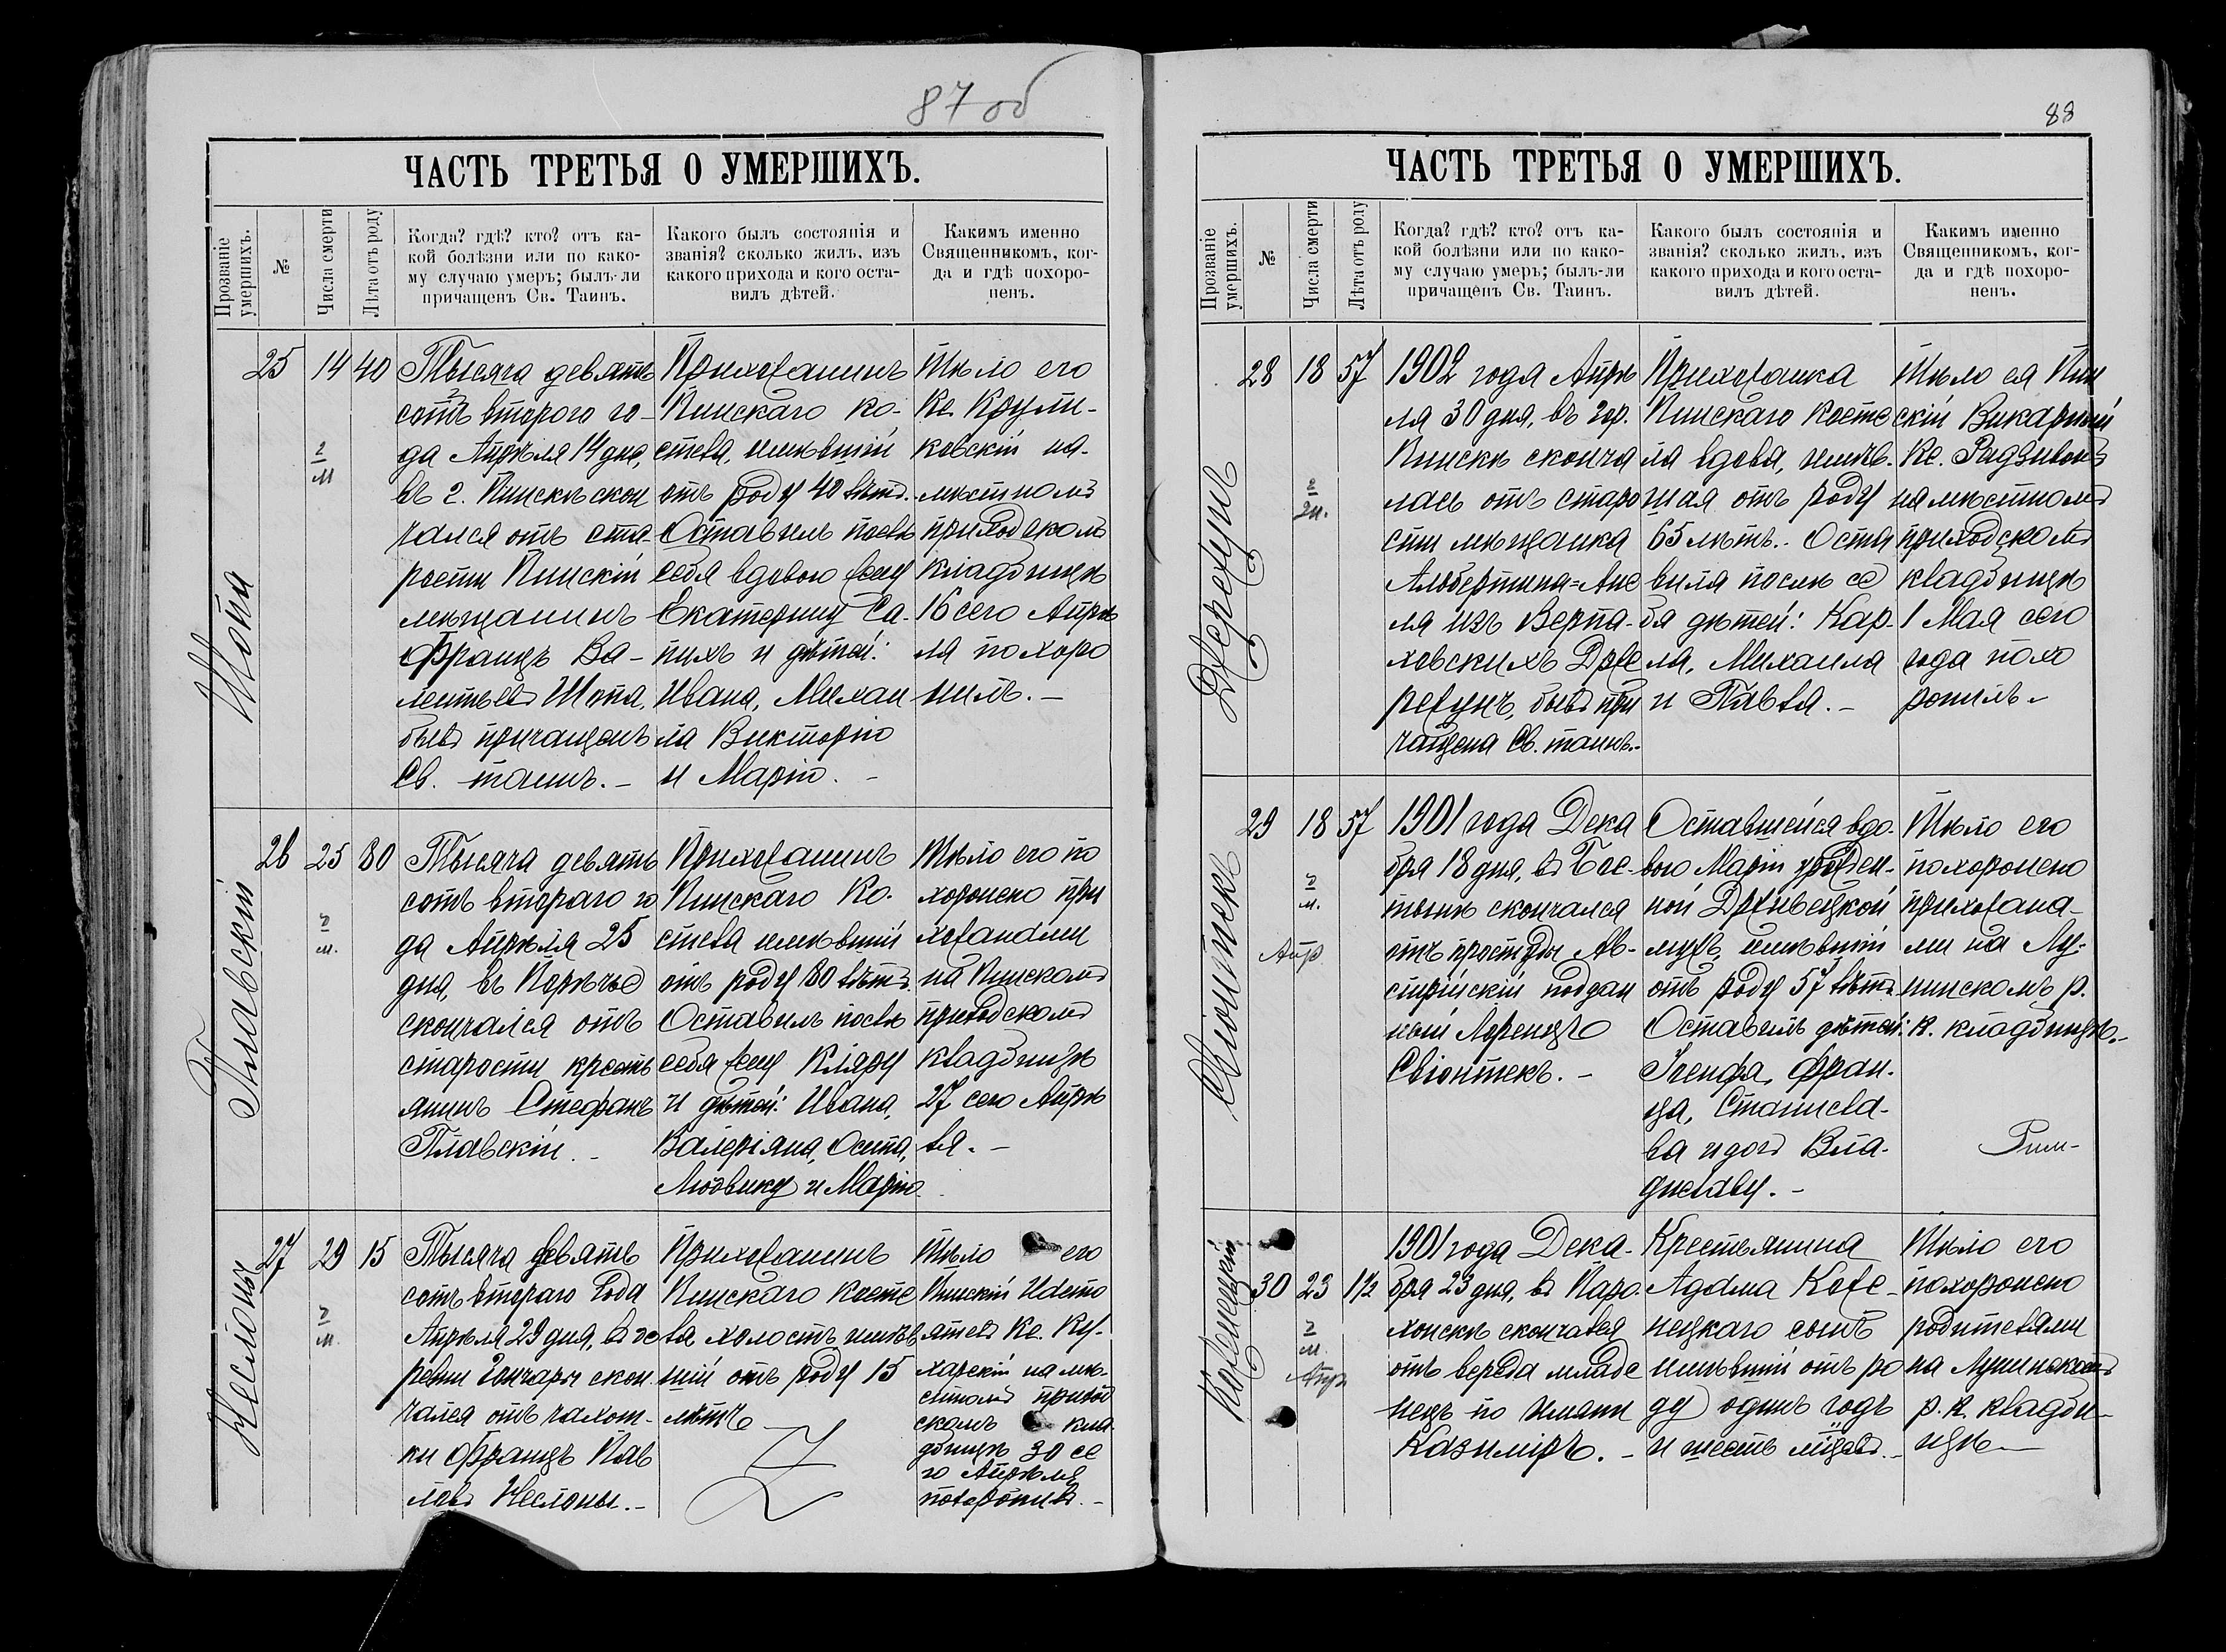 87 об
ЧАСТЬ ТРЕТЬЯ О УМЕРШИХЪ.
Прозваніе умершихъ.
№
Числа смерти
Лѣта отъ роду
Когда? гдѣ? кто? отъ ка-
кой болѣзни или по како-
му случаю умеръ; былъ-ли
причащенъ Св. Таинъ.
Какого былъ состоянія и
званія? сколько жилъ, изъ
какого прихода и кого оста-
вилъ дѣтей.
Какимъ именно
Священникомъ, ког-
да и гдѣ похоро-
ненъ.
Шопа
25
14
40
Тысяча девять
сотъ второго го-
да Апрѣля 14 дня,
въ г. Пинскѣ скон
чался отъ ста-
рости Пинскій
мѣщанинъ
Францъ Ва-
лентьевъ Шопа,
бывъ причащенъ
Св. таинъ. –
Прихожанинъ
Пинскаго ко-
стела, имѣвшій
отъ роду 40 лѣтъ.
Оставилъ послѣ
себя вдовою жену
Екатерину Са-
пихъ и дѣтей:
Ивана, Михаи
ла Викторію
и Марію. –
Тѣло его
Кс. Крули-
ковскій на
мѣстномъ
приходскомъ
кладбищѣ
16 сего Апрѣ
ля похоро
нилъ. –
Плавскій
26
25
80
Тысяча девять
сотъ втораго го
да Апрѣля 25
дня, въ Порѣчьѣ
скончался отъ
старости кресть
янинъ Стефанъ
Плавскій. –
Прихожанинъ
Пинскаго Ко-
стела имѣвшій
отъ роду 80 лѣтъ.
Оставилъ послѣ
себя жену Кляру
и дѣтей: Ивана,
Валеріяна, Осипа,
Людвику и Марію
Тѣло его по
хоронено при
хожанами
на Пинскомъ
приходскомъ
кладбищѣ
27 сего Апрѣ
ля. –
Неслюны
27
29
15
Тысяча девять
сотъ втораго года
Апрѣля 29 дня, въ де
ревни Гончары скон
чался отъ чахот-
ки Францъ Пав
ловъ Неслюны. –
Прихожанинъ
Пинскаго косте
ла холостъ имѣв
шій отъ роду 15
лѣтъ
Тѣло его
Пинскій Насто
ятель Кс. Ку-
харскій на мѣ-
стномъ приход
скомъ кла
дбищѣ 30 се
го Апрѣля
похоронилъ. –
88
ЧАСТЬ ТРЕТЬЯ О УМЕРШИХЪ.
Прозваніе умершихъ.
№
Числа смерти
Лѣта отъ роду
Когда? гдѣ? кто? отъ ка-
кой болѣзни или по како-
му случаю умеръ; былъ-ли
причащенъ Св. Таинъ.
Какого былъ состоянія и
званія? сколько жилъ, изъ
какого прихода и кого оста-
вилъ дѣтей.
Какимъ именно
Священникомъ, ког-
да и гдѣ похоро-
ненъ.
28
18
57
1902 года Апрѣ
ля 30 дня, въ гор.
Пинскѣ сконча
лась отъ старо
сти мѣщанка
Альбертина-Ане
ля изъ Верпа-
ховскихъ Држе
режунъ, бывъ при
чащена Св. таинъ. –
Прихожанка
Пинскаго косте
ла вдова, имѣв-
шая отъ роду
65 лѣтъ. Оста
вила послѣ се
бя дѣтей: Кар-
ла, Михаила
и Павла. –
Тѣло ея Пин
скій Викарный
Кс. Радзивонъ
на мѣстномъ
приходскомъ
кладбищѣ
1 Мая сего
года похо
ронилъ. –
Свіонтекъ
29
18
57
Апр
1901 года Дека
бря 18 дня, въ
скончался
отъ простуды Ав-
стрійскій поддан
ный Лоренцъ
Свіонтекъ. –
Оставшейся вдо-
вою Маріи урожден-
ной
мужъ, имѣвшій
отъ роду 57 лѣтъ.
Оставилъ дѣтей:
Іосифа, Фран-
ца, Станисла-
ва и дочь Вла-
диславу. –
Тѣло его
похоронено
прихожана-
ми на Лу-
нинскомъ р.
к. кладбищѣ. –
Рим-
30
23
1½
Апр
1901 года Дека-
бря 23 дня, въ Паро-
хонскѣ скончался
отъ вереда младе
нецъ по имени
Казиміръ. –
Крестьянина
Адама Коже-
нецкаго сынъ
имѣвшій отъ ро
ду одинъ годъ
и шесть мѣсяц. –
Тѣло его
похоронено
родителями
на Лунинскомъ
р. к. кладби-
щѣ –